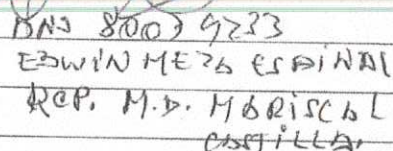 DNI 80039233
EDWIN MEZA ESPINAL
REP. M.D. MARISCAL
CASTILLA.